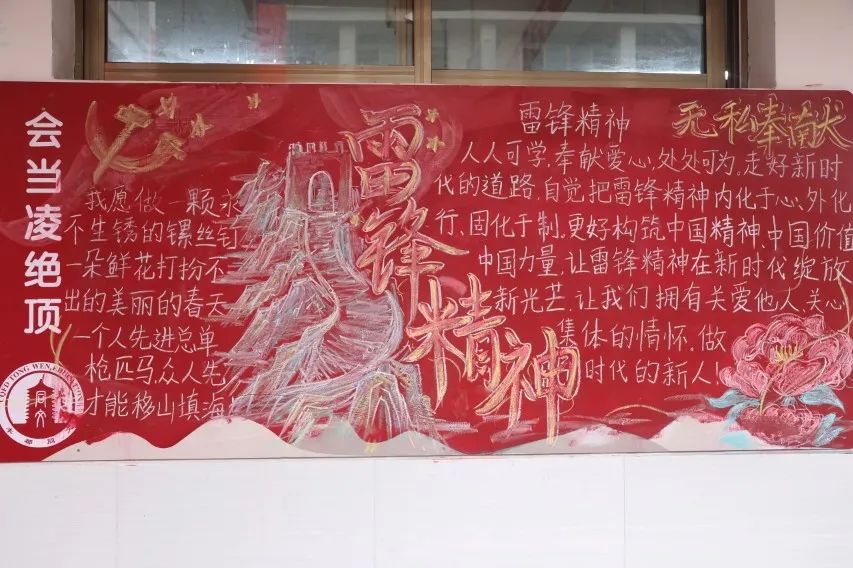 会当凌绝顶
我愿做一颗永
不生锈的镙丝钉
一朵鲜花打扮不
出的美丽的春天
一个人先进总单
枪匹马,众人先
才能移山填海
雷锋精神
雷锋精神
无私奉献
人人可学,奉献爱心,处处可为,走好新时
代的道路,自觉把雷锋精神内化于心、外化
行、固化于制,更好构筑中国精神、中国价值
中国力量,让雷锋精神在新时代绽放
新光芒,让我们拥有关爱他人、关心
集体的情怀,做
时代的新人!
同文